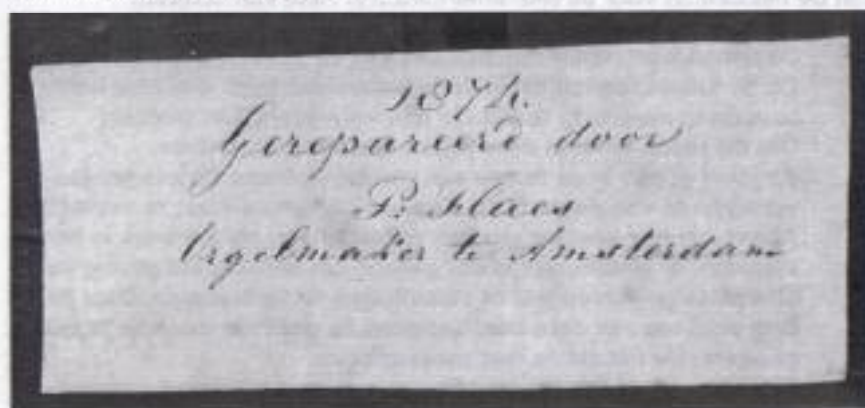 1874.
Gerepareerd door
P. Flaes
Orgelmaker te Amsterdam